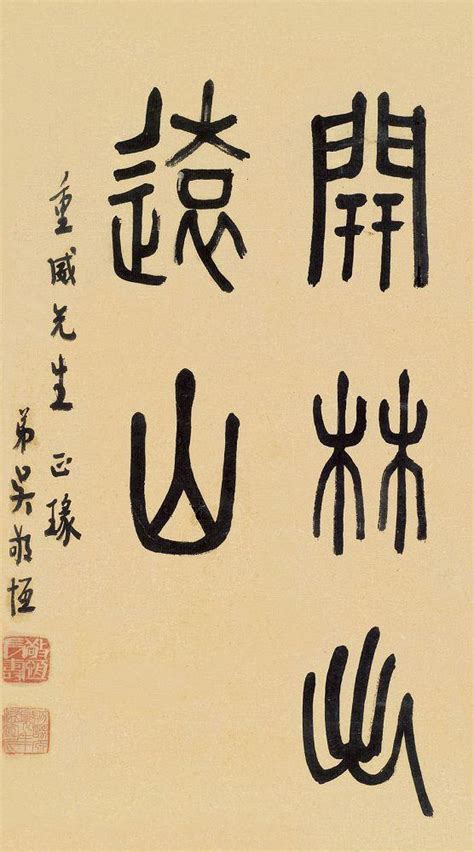 開林出
遠山
重威先生 正瑑
弟吳敬恆